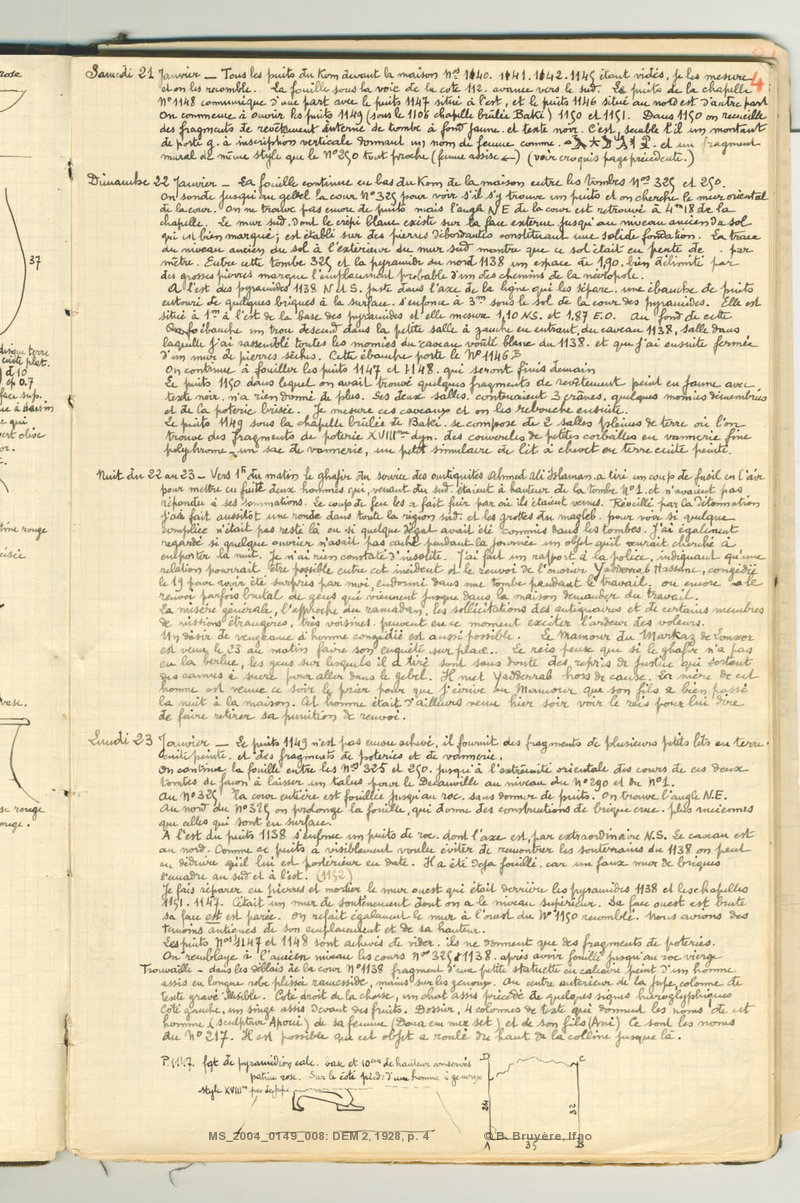 4
Samedi 21 Janvier — Tous les puits du Kom devant la maison Nos 1140. 1141. 1142. 1145 étant vidés, je les mesure
et on les recomble. La fouille sous la voie de la cote 112. avance vers le sud. Le puits de la chapelle
N° 1148 communique d'une part avec le puits 1147 situé à l'est, et le puits 1146 situé au nord est d'autre part
On commence à ouvrir les puits 1149 (sous le 1106 chapelle brûlée Baki) 1150 et 1151. Dans 1150 on recueille
des fragments de revêtement interne de tombe à fond jaune et texte noir. C'est, semble t'il un montant
de porte g. à inscription verticale donnant un nom de femme comme. et un fragment
mural de même style que le N° 250 tout proche (femme assise ←) (voir croquis page précédente.)
Dimanche 22 Janvier — La fouille continue en bas du Kom de la maison entre les tombes Nos 325 et 250.
On sonde jusqu'au gebel la cour N° 325 pour voir s'il s'y trouve un puits et on cherche le mur oriental
de la cour. On ne trouve pas encore de puits mais l'angle NE de la cour est retrouvé à 4m 18 de la
chapelle. Le mur sud, dont le crépi blanc existe sur la face externe jusqu'au niveau ancien du sol
qui est bien marqué; est établi sur des pierres débordantes constituant une solide fondation. La trace
du niveau ancien du sol à l'extérieur du mur sud montre que ce sol était en pente de . par
mètre. Entre cette tombe 325 et la pyramide du nord 1138 un espace de 1,90 bien délimité par
des grosses pierres marque l'emplacement probable d'un des chemins de la nécropole.
A l'est des pyramides 1138 N et S. juste dans l'axe de la ligne qui les sépare une ébauche de puits
entouré de quelques briques à la surface. s'enfonce à 3m sous le sol de la cour des pyramides. Elle est
situé à 1m à l'est de la base des pyramides et elle mesure 1,10 N.S. et 1,87 E.O. Au fond de cette
ébauche un trou descend dans la petite salle à gauche en entrant, du caveau 1138, salle dans
laquelle j'ai rassemblé toutes les momies du caveau voûté blanc du 1138. et que j'ai ensuite fermée
d'un mur de pierres sèches. Cette ébauche porte le N° 1146 B
On continue à fouiller les puits 1147 et 1148. qui seront finis demain
Le puits 1150 dans lequel on avait trouvé quelques fragments de revêtement peint en jaune avec
texte noir. n'a rien donné de plus. Ses deux salles contenaient 3 crânes. quelques momies démembrées
et de la poterie brisée. Je mesure ces caveaux et on les rebouche ensuite.
Le puits 1149 sous la chapelle brûlée de Baki. se compose de 2 salles pleines de terre où l'on
trouve des fragments de poterie XVIIIme dyn. des couvercles de petites corbeilles en vannerie fine
polychrome — un sac de vannerie, un petit simulaire de lit à chevet en terre cuite peinte.
Nuit du 22 au 23 — Vers 1h du matin le ghafir du service des antiquités Ahmed Ali Islaman. a tiré un coup de fusil en l'air
pour mettre en fuite deux hommes qui, venant du sud. étaient à hauteur de la tombe N° 1. et n'avaient pas
répondu à ses sommations. Le coup de feu les a fait fuir par où ils étaient venus. Réveillé par la détonation
j'ai fait aussitôt une ronde dans toute la région sud. et les grottes du magleb. pour voir si quelque
complice n'était pas resté là ou si quelque dégat avait été commis dans les tombes. J'ai également
regardé si quelque ouvrier n'avait pas caché pendant la journée un objet qu'il aurait cherché à
emporter la nuit. Je n'ai rien constaté d'insolite. J'ai fait un rapport à la police, indiquant qu'une
relation pourrait être possible entre cet incident et le renvoi de l'ouvrier Yadderrab Hassane, congédié
le 19 pour avoir été surpris par moi, endormi dans une tombe pendant le travail. ou encore le
renvoi parfois brutal de gens qui viennent jusque dans la maison demander du travail.
La misère générale, l'approche du ramadan, les sollicitations des antiquaires et de certains membres
de missions étrangères, très voisines. peuvent en ce moment exciter l'ardeur des voleurs.
Un désir de vengeance d'homme congédié est aussi possible. Le Mamour du Markaz de Louxor
est venu le 23 au matin faire son enquête sur place. Le reis pense que si le ghafir n'a pas
eu la berlue, les gens sur lesquels il a tiré sont sans doute des repris de justice qui sortent
des cannes à sucre pour aller dans le gebel. Il met Yadderrab hors de cause. La mère de cet
homme est venue ce soir le prier pour que j'écrive au Mamour que son fils a bien passé
la nuit à la maison. Cet homme était d'ailleurs venu hier soir voir le reis pour lui dire
de faire retirer sa punition de renvoi.
Lundi 23 Janvier — Le puits 1149 n'est pas encore achevé, il fournit des fragments de plusieurs petits lits en terre
cuite peinte. et des fragments de poteries et de vannerie.
On continue la fouille entre les Nos 325 et 250. jusqu'à l'extrémité orientale des cours de ces deux
tombes de façon à laisser un talus pour le Decauville au niveau du N° 290 et du N° 1.
Au N° 325 la cour entière est fouillée jusqu'au roc. sans donner de puits. On trouve l'angle N.E.
Au nord du N° 325 on prolonge la fouille, qui donne des constructions de brique crue. plus anciennes
que celles qui sont en surface.
A l'est du puits 1138 s'enfonce un puits de roc. dont l'axe est, par extraordinaire N.S. Le caveau est
au nord. Comme ce puits a visiblement voulu éviter de rencontrer les souterrains du 1138 on peut
en déduire qu'il lui est postérieur en date. Il a été déjà fouillé. car un faux mur de briques
l'encadre au sud et à l'est. (1152)
Je fais réparer en pierres et mortier le mur ouest qui était derrière les pyramides 1138 et les chapelles
1151. 1147. C'était un mur de soutènement dont on a le niveau supérieur. Sa face ouest est brute
sa face est est parée. On refait également le mur à l'ouest du N° 1150 recomblé. Nous avions des
témoins antiques de son emplacement et de sa hauteur.
Les puits Nos 1147 et 1148 sont achevés de vider. ils ne donnent que des fragments de poteries.
On remblaye à l'ancien niveau les cours Nos 325 et 1138. après avoir fouillé jusqu'au roc vierge
Trouvaille — dans les déblais de la cour N° 1138 fragment d'une petite statuette en calcaire peint d'un homme
assis en longue robe plissée ramesside, mains sur les genoux. Au centre antérieur de la jupe, colonne de
texte gravé illisible. Coté droit de la chaise, un chat assis précédé de quelques signes hiéroglyphiques
Coté gauche, un singe assis devant des fruits. Dossier, 4 colonnes de texte qui donnent les noms de cet
homme (sculpteur Apoui) de sa femme (Doua em mer set) et de son fils (Ani) Ce sont les noms
du N° 217. Il est possible que cet objet a roulé du haut de la colline jusque là.
P. 1147. fgt de pyramidion calc. base et 10cm de hauteur conservés
patine rose. Sur le côté pieds d'une homme à genoux
style XVIIIme
D C
24 32
A 35 B
37
MS_2004_0149_008: DEM 2, 1928, p. 4 © B. Bruyère, Ifao